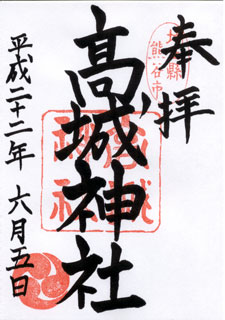 奉拝
埼玉縣
熊谷市
高城神社
平成二十二年 六月五日